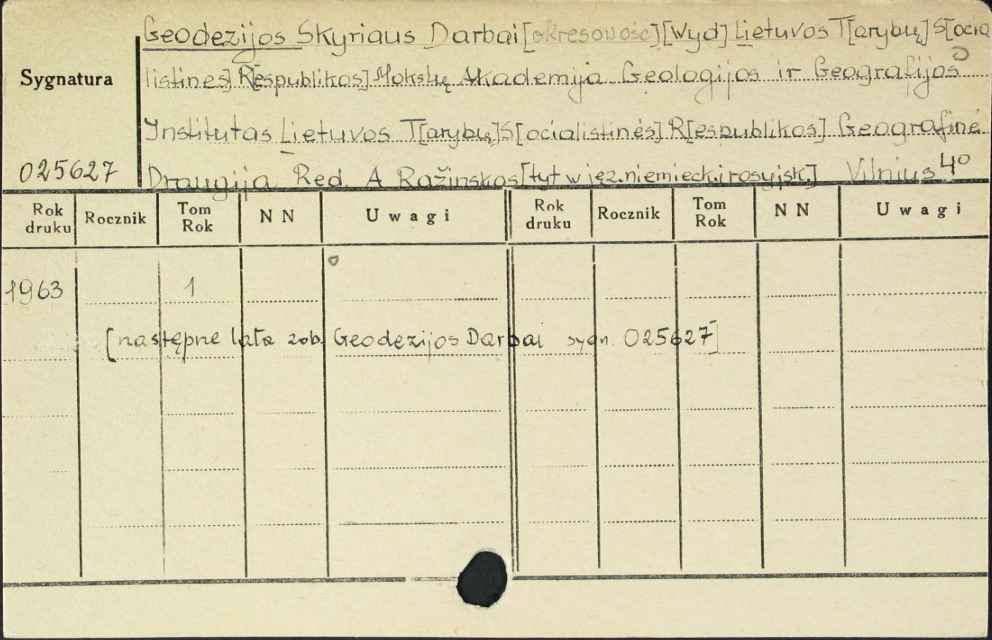 Geodezijos Skyriaus Darbai [okresowość] [Wyd] Lietuvos T[arybų] S[ocia
listinės] R[espublikos] Mokslų Akademija Geologijos ir Geografijos
Sygnatura
Institutas Lietuvos T[arybų] S[ocialistinės] R[espublikos] Geografinė
025627
Draugija Red. A Ražinskas [tyt w jęz. niemiecki rosyjsk.] Vilnius 4°
Rok druku Rocznik Tom Rok NN Uwagi Rok druku Rocznik Tom Rok NN Uwagi
1963 1
[następne lata zob. Geodezijos Darbai sygn. 025627]